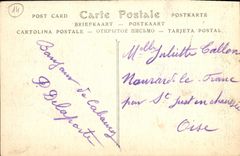 14
POST CARD Carte Postale POSTKARTE
BRIEFKAART — ОТКРЫТОЕ ПИСЬМО — POSTKAART
CARTOLINA POSTALE TARJETA POSTAL
Bonjour de Cabourg
P. Delaporte
Mlle Juliette Callon
Nourard le Franc
par St Just en chaussée
Oise